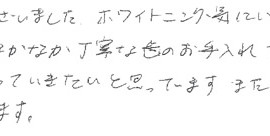 ざいました。ホワイトニング気にい
なかなか丁寧な歯のお手入れ
っていきたいと思っています また
ます。